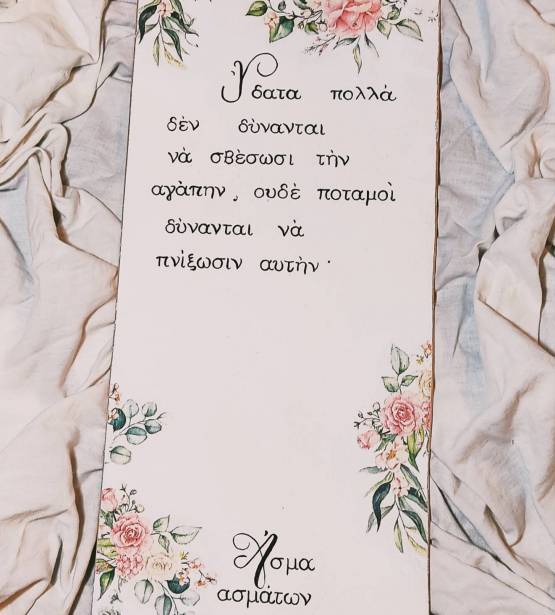 Ὕδατα πολλὰ
δὲν δὺνανται
νὰ σβὲσωσι τὴν
αγὰπην, ουδὲ ποταμοὶ
δὺνανται νὰ
πνὶξωσιν αυτὴν·
Ἄσμα
ασμὰτων